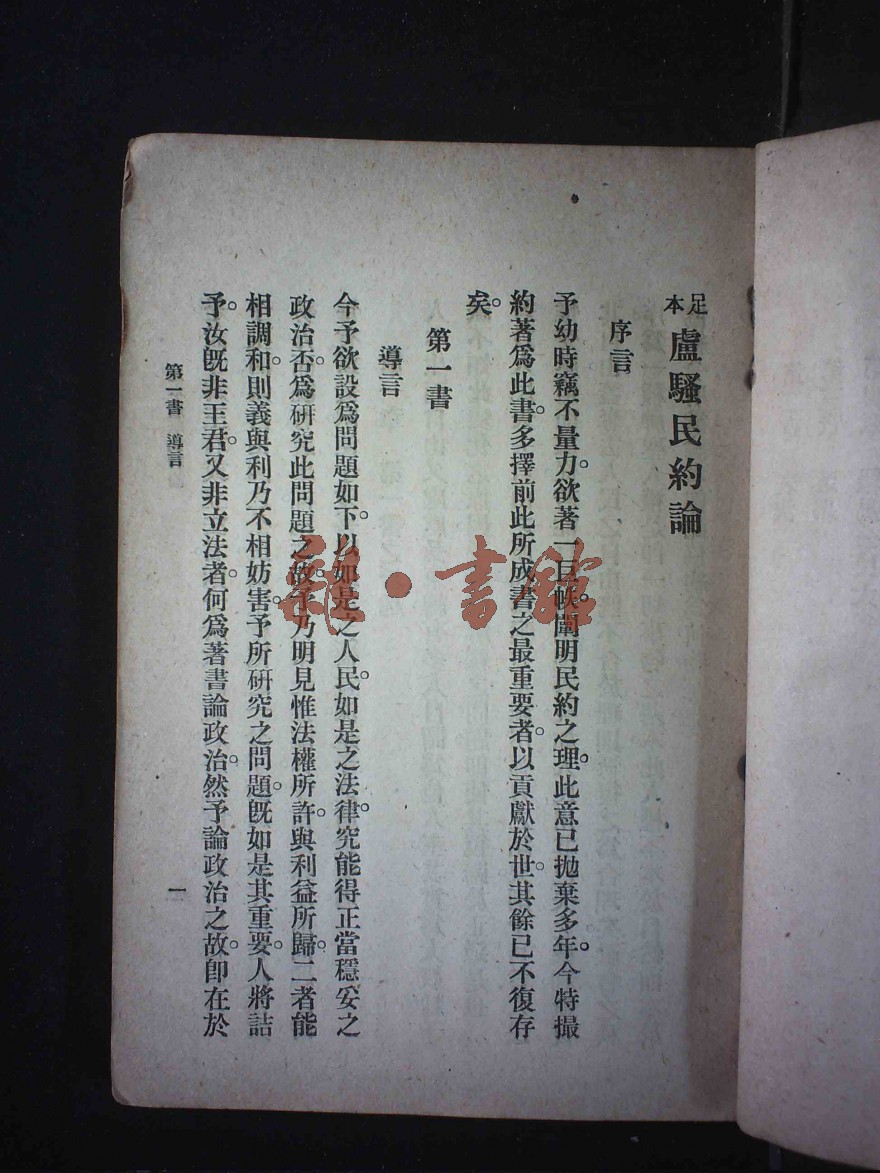 足本 盧騷民約論
序言
予幼時竊不量力。欲著一巨帙。闡明民約之理。此意已拋棄多年。今特撮
約著爲此書。多擇前此所成書之最重要者。以貢獻於世。其餘已不復存
矣。
第一書
導言
今予欲設爲問題如下。以如是之人民。如是之法律。究能得正當穩妥之
政治否。爲硏究此問題之故。予乃明見惟法權所許。與利益所歸。二者能
相調和。則義與利乃不相妨害。予所硏究之問題。旣如是其重要。人將詰
予。汝旣非王君。又非立法者。何爲著書論政治。然予論政治之故。卽在於
第一書 導言
一
雜·書館